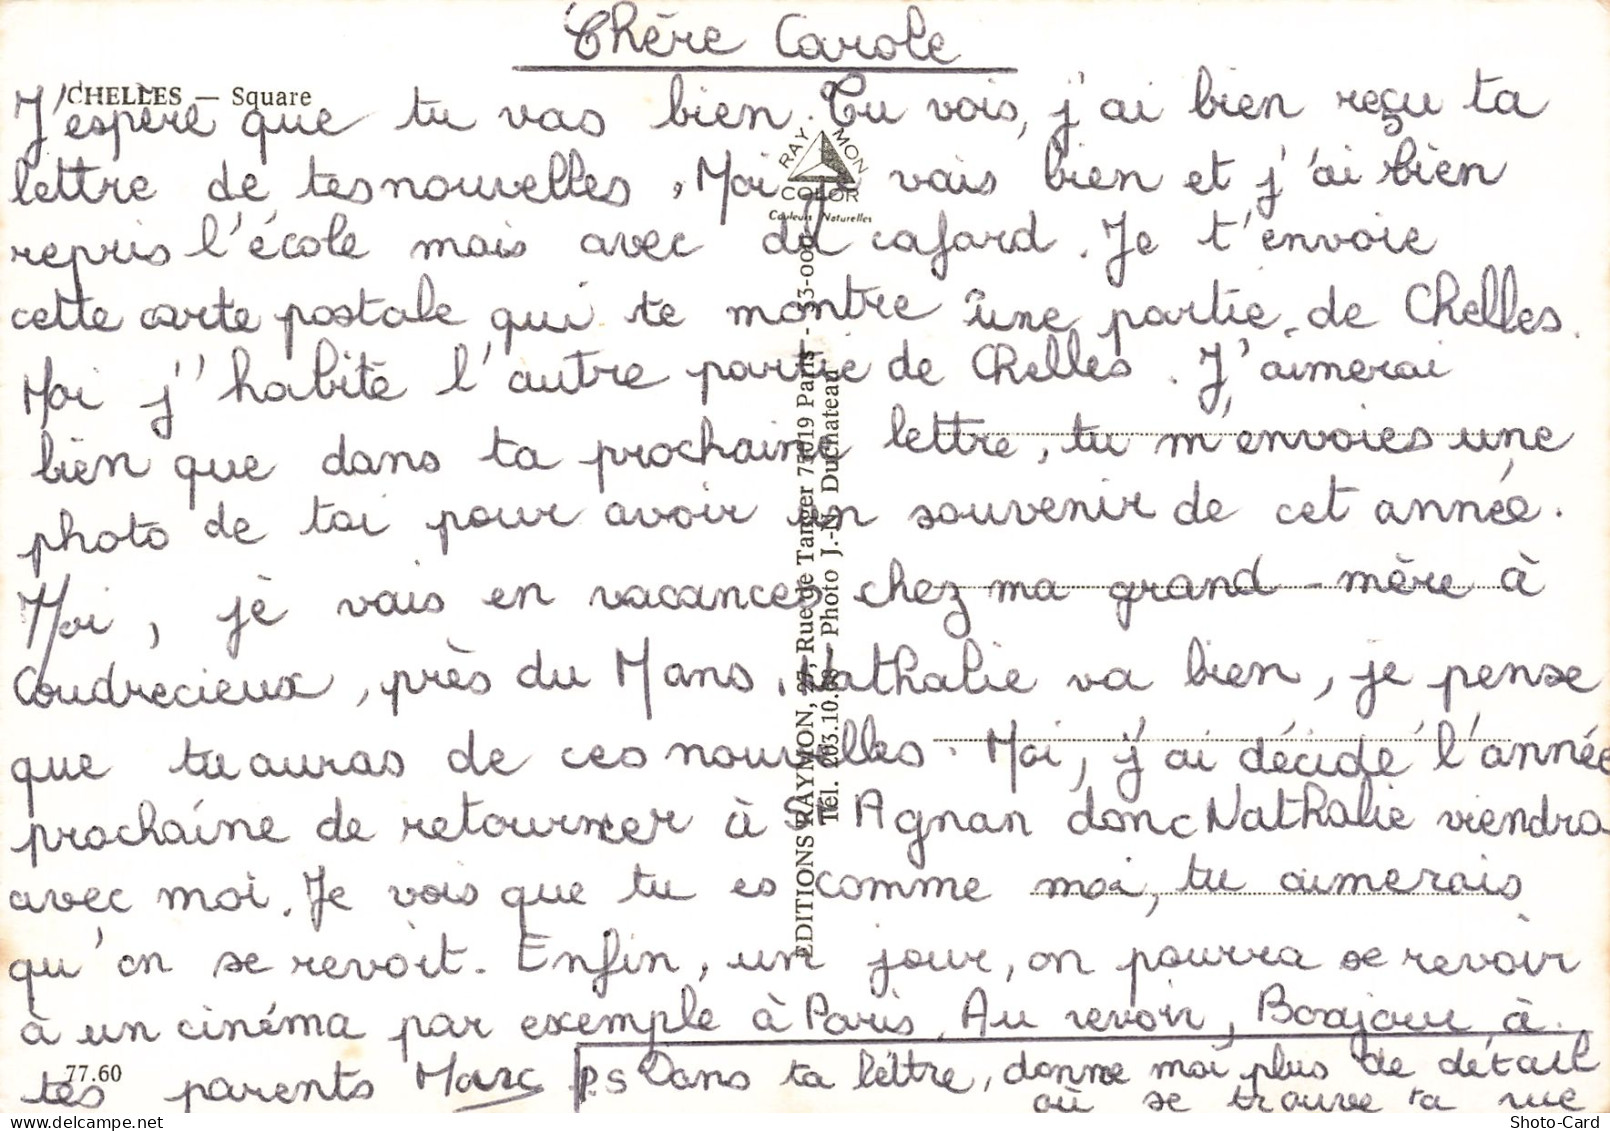 Chère Carole
CHELLES — Square
J'espère que tu vas bien. Tu vois, j'ai bien reçu ta
lettre de tes nouvelles, Moi je vais bien et j'ai bien
repris l'école mais avec du cafard. Je t'envoie
cette carte postale qui te montre une partie de Chelles.
Moi j'habite l'autre partie de Chelles. J'aimerai
bien que dans ta prochaine lettre, tu m'envoies une
photo de toi pour avoir un souvenir de cet année.
Moi, je vais en vacances chez ma grand-mère à
Coudrecieux, près du Mans, Nathalie va bien, je pense
que tu auras de ces nouvelles. Moi, j'ai décidé l'année
prochaine de retourner à St Agnan donc Nathalie viendra
avec moi. Je vois que tu es comme moi, tu aimerais
qu'on se revoit. Enfin, un jour, on pourra se revoir
à un cinéma par exemple à Paris. Au revoir, Bonjour à
tes parents Marc
P.S Dans ta lettre, donne moi plus de détail
où se trouve ta rue
77.60
RAYMON
COLOR
Couleurs Naturelles
EDITIONS RAYMON, 27, Rue de Tanger 75019 Paris - 33-00
Tél. 203.10.68 - Photo J.-N. Duchateau
Shoto-Card